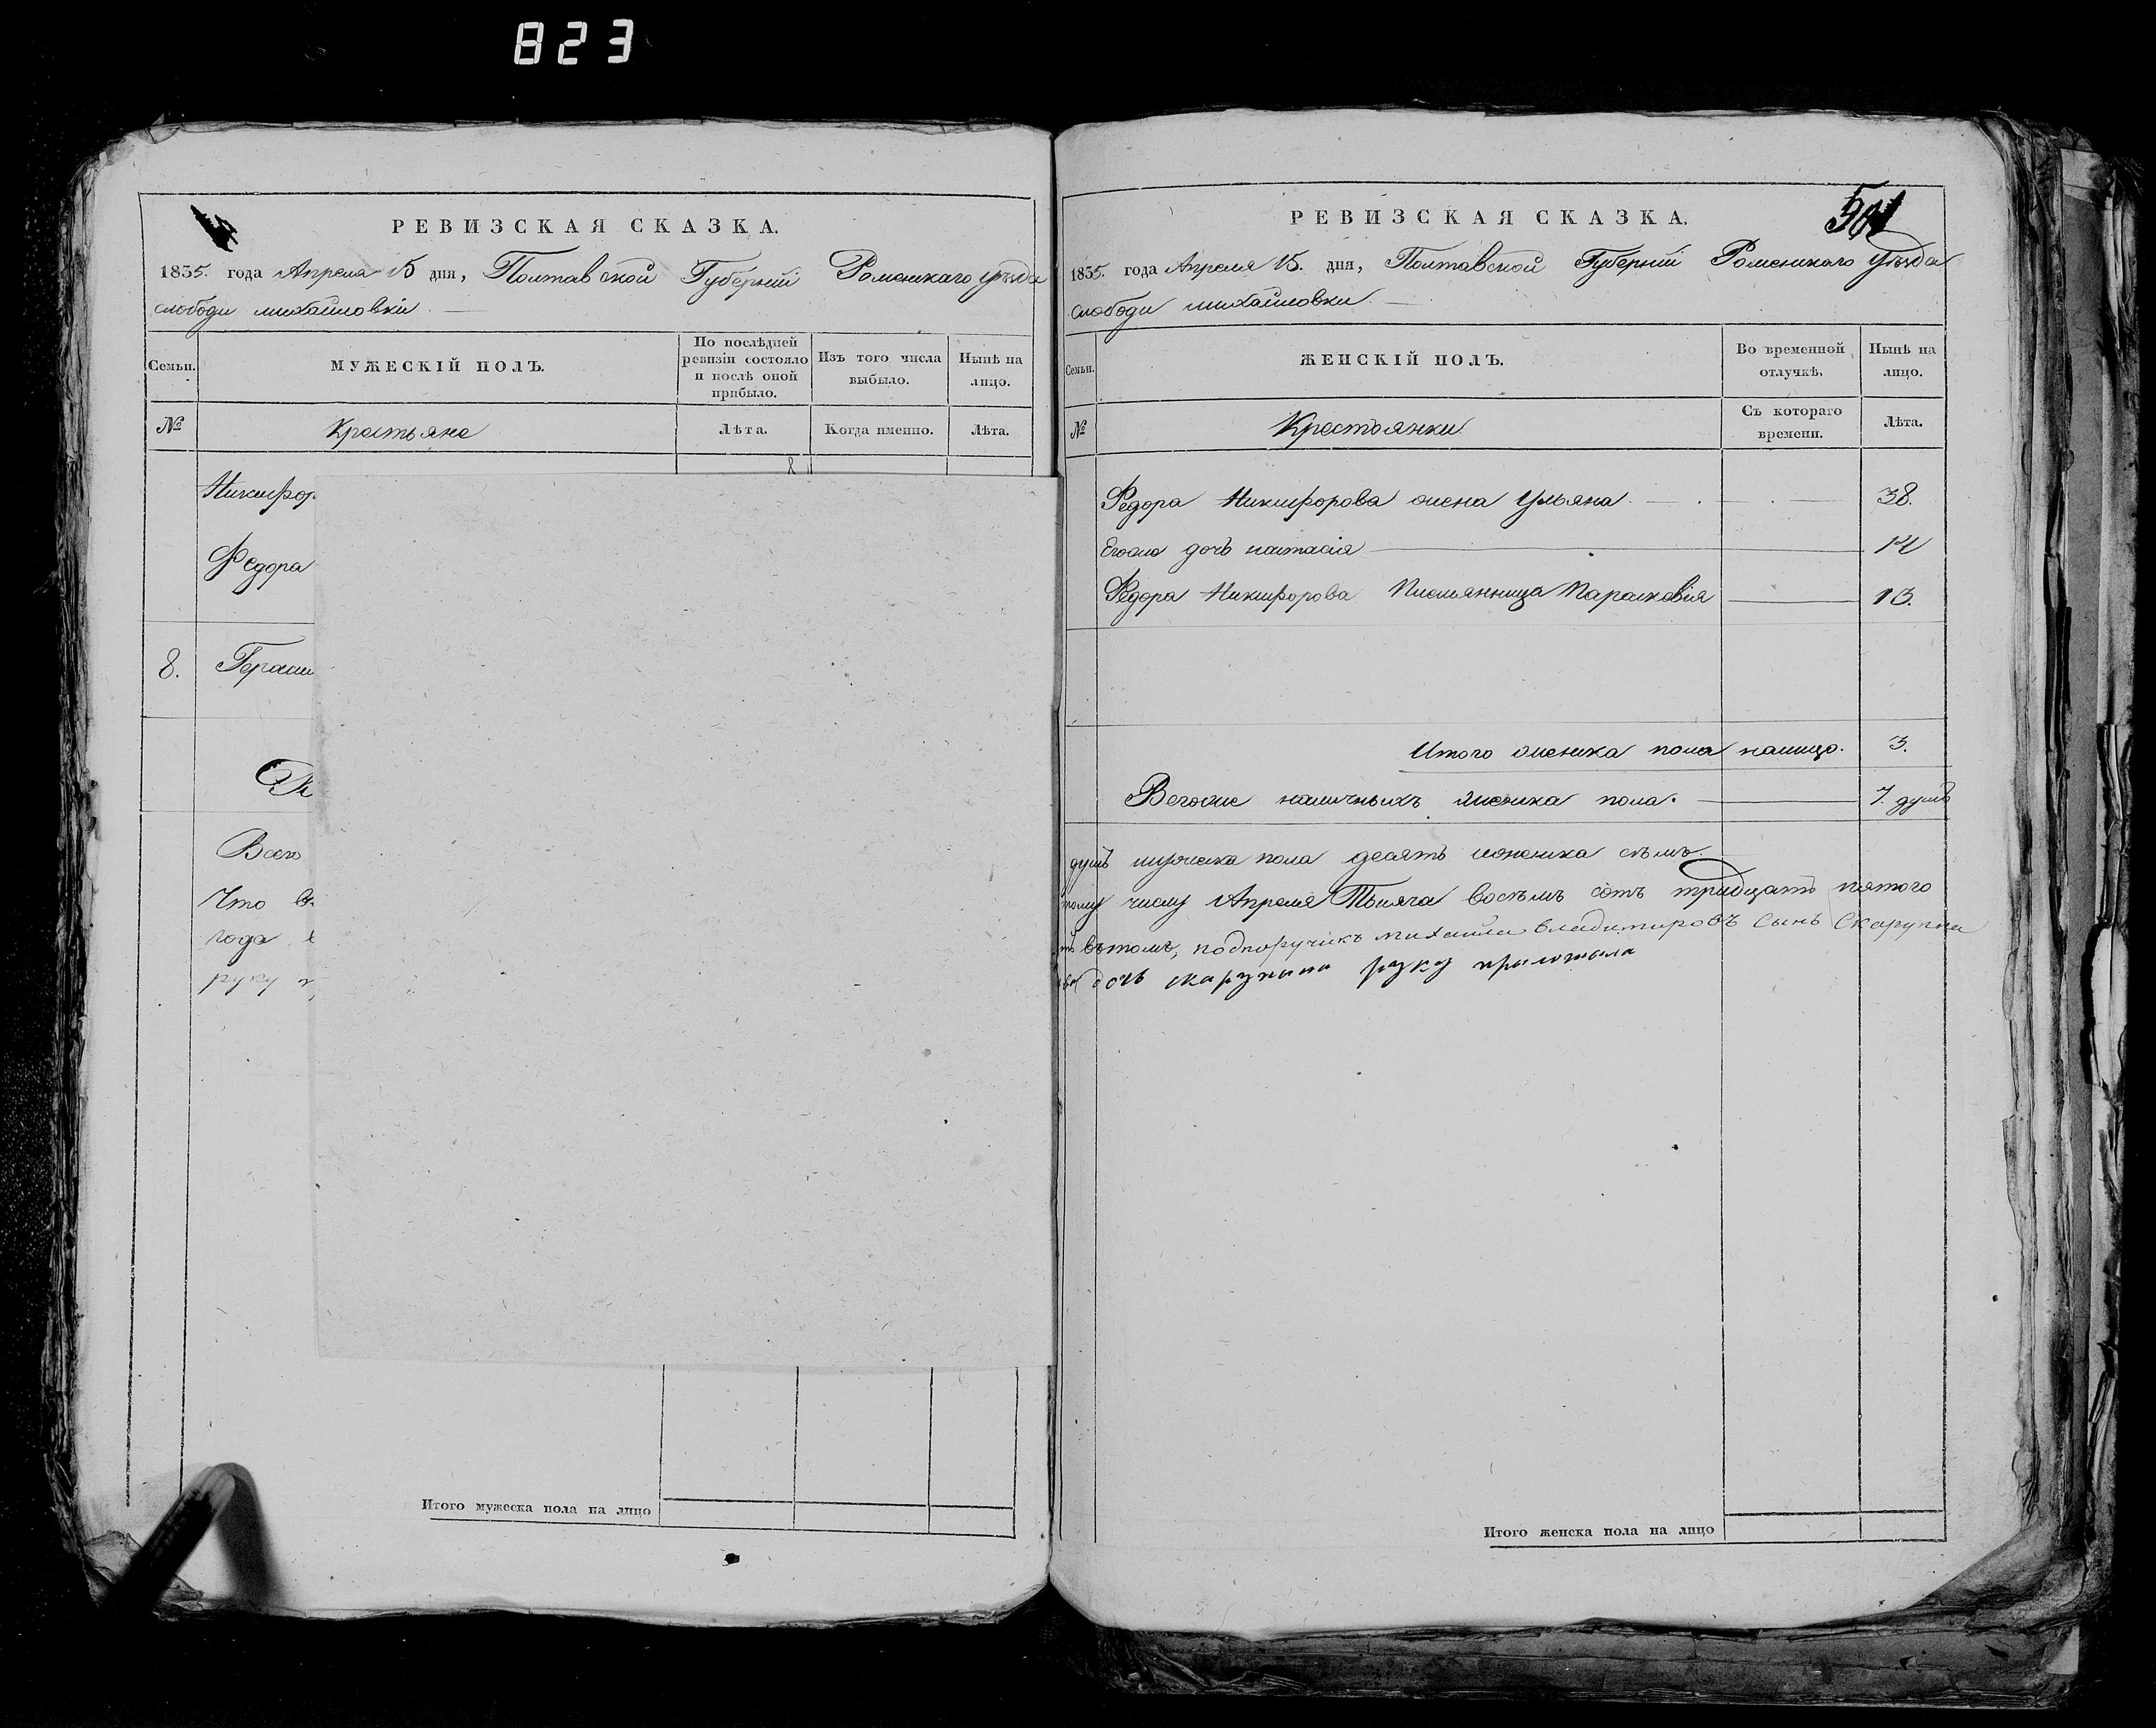 823
РЕВИЗСКАЯ СКАЗКА.
1835. года Апреля 15 дня, Полтавской Губернїи Роменскаго уѣзда
слободи михайловки
Семьи.
МУЖЕСКІЙ ПОЛЪ.
По послѣдней ревизіи состояло и послѣ оной прибыло.
Изъ того числа выбыло.
Нынѣ на лицо.
№
Крестьяне
Лѣта.
Когда именно.
Лѣта.
Никифор
Федора
8. Гераси
Всего
Что в
года
руку
Итого мужеска пола на лицо
501
РЕВИЗСКАЯ СКАЗКА.
1835. года Апреля 15. дня, Полтавской Губернїи Роменскаго уѣзда
слободи михайловки
Семьи.
ЖЕНСКІЙ ПОЛЪ.
Во временной отлучкѣ.
Нынѣ на лицо.
№
Крестьянки
Съ котораго времени.
Лѣта.
Федора Никифорова жена Ульяна 38.
Егоже дочь настасія 14
Федора Никифорова Писмянница Парасковія 13.
Итого женска пола налицо. 3.
Всегоже наличныхъ женска пола. 7. душъ
душъ мужеска пола десять ионенска съмъ.
тому числу Апреля Тысяча восѣмъ сотъ тридцать пятого
вътомъ, подпоручикъ михаила владимировъ сынъ Скарупка
дочь скарупина руку приложила
Итого женска пола на лицо